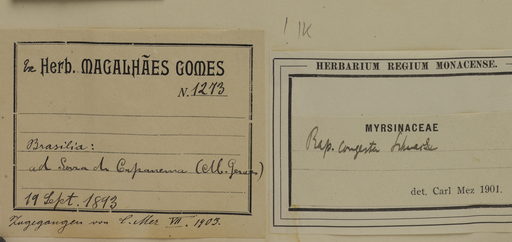 Ex Herb. MAGALHÃES GOMES
N. 1273
Brasilia:
ad Serra de Capanema (M. Geraes)
19 Sept. 1893
Zugegangen von C. Mez VII. 1903.
! 1K
HERBARIUM REGIUM MONACENSE.
MYRSINACEAE
Rap. congesta Schwacke
det. Carl Mez 1901.